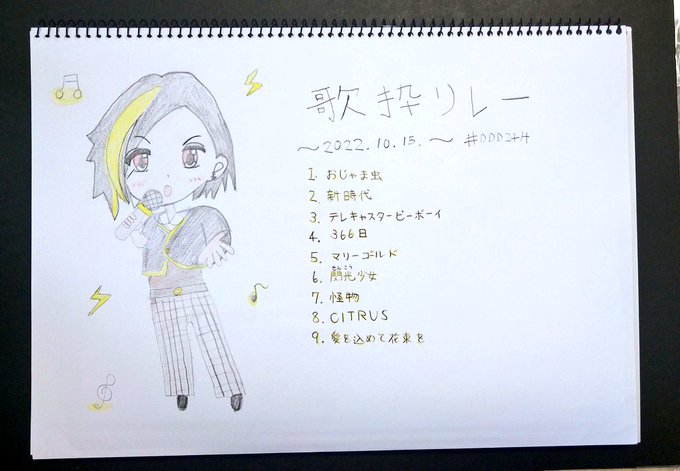 歌枠リレー
～2022.10.15.～ #DDD24H
1. おじゃま虫
2. 新時代
3. テレキャスタービーボーイ
4. 366日
5. マリーゴールド
せんこう
6. 閃光少女
7. 怪物
8. CITRUS
9. 愛を込めて花束を